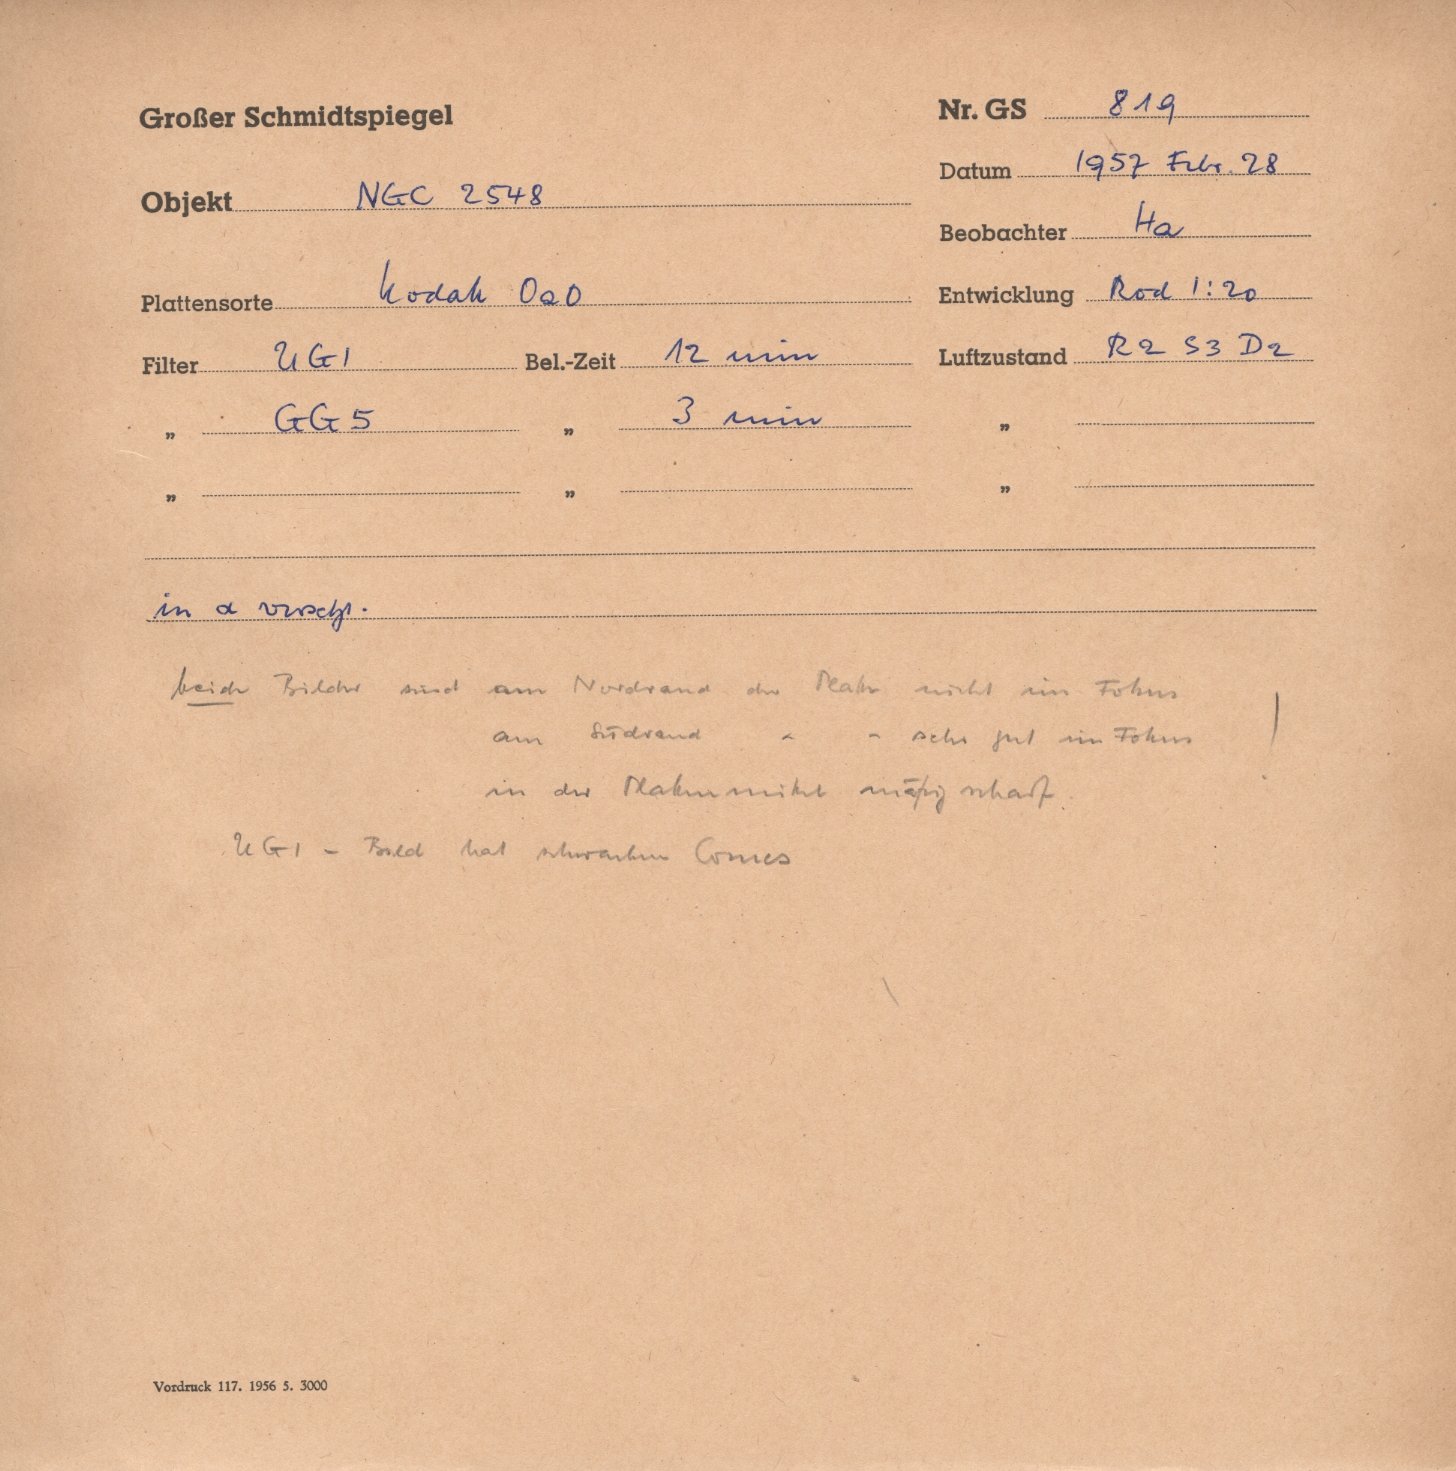 Großer Schmidtspiegel
Nr. GS 819
Datum 1957 Febr. 28
Objekt NGC 2548
Beobachter Ha
Plattensorte Kodak OaO
Entwicklung Rod 1:20
Filter UG1 Bel.-Zeit 12 min Luftzustand R2 S3 D2
„ GG5 „ 3 min „
„ „ „
in α versch.
beide Bilder sind am Nordrand der Platte nicht im Fokus
am Südrand " " sehr gut im Fokus !
in der Plattenmitte mäßig scharf.
UG1 - Bild hat schwachen Comes
Vordruck 117. 1956 5. 3000